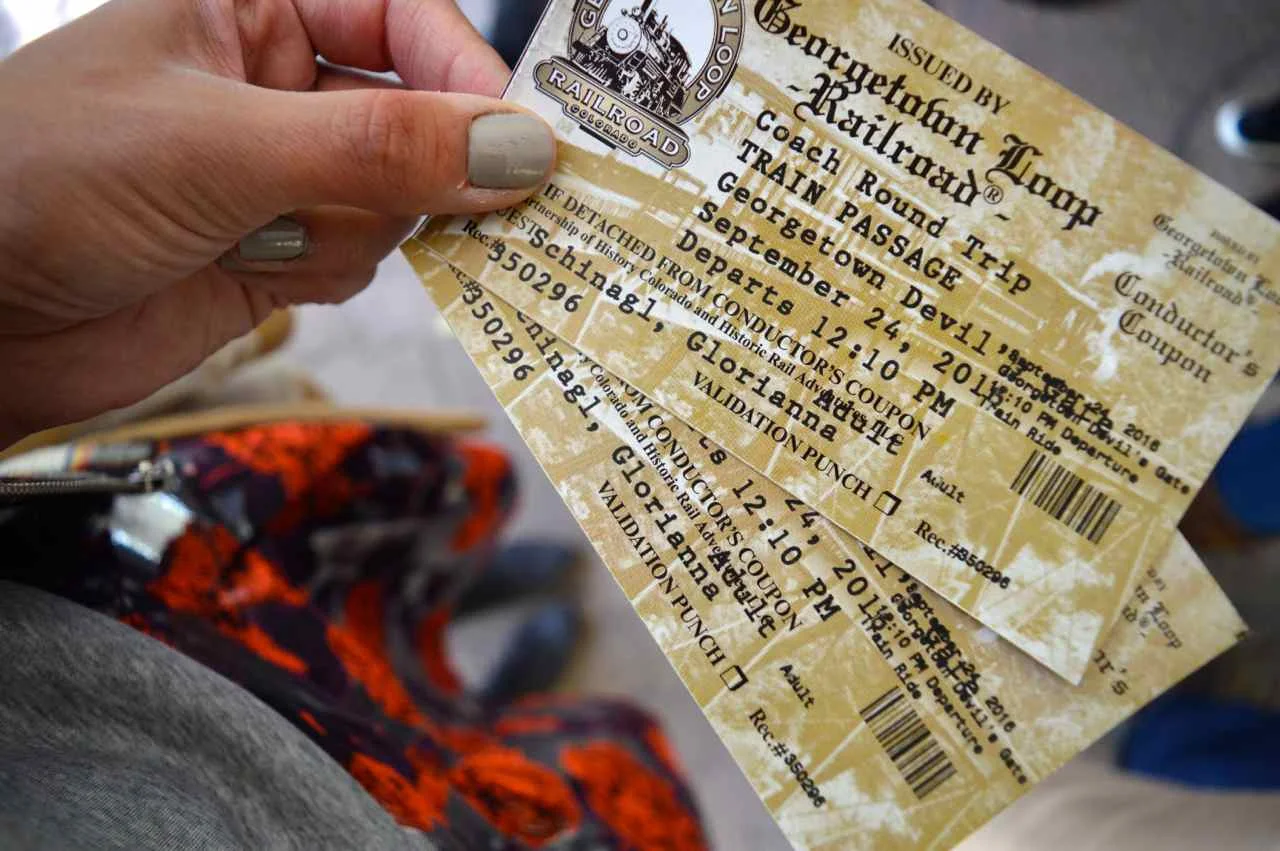 GE
N LOOP
RAILROAD
COLORADO
ISSUED BY
Georgetown Loop
-Railroad®-
Coach Round Trip
TRAIN PASSAGE
Georgetown Devil's
September 24, 2016
Departs 12:10 PM
IF DETACHED FROM CONDUCTOR'S COUPON
artnership of History Colorado and Historic Rail Adve
Adult
Schinagl, Glorianna
Rec.#350296
VALIDATION PUNCH
Georgetown Loo
-Railroad®-
Conductor's
Coupon
September 24, 2016
12:10 PM Departure
Georgetown Devil's Gate
Train Ride
Adult
Rec.#350296
24, 201
s 12:10 PM
OM CONDUCTOR'S COUPON
Colorado and Historic Rail Adve
Adult
chinagl, Glorianna
#350296
VALIDATION PUNCH
n Loop
d®-
r's
September 24, 2016
12:10 PM Departure
Georgetown Devil's Gate
Train Ride
Adult
Rec.#350296